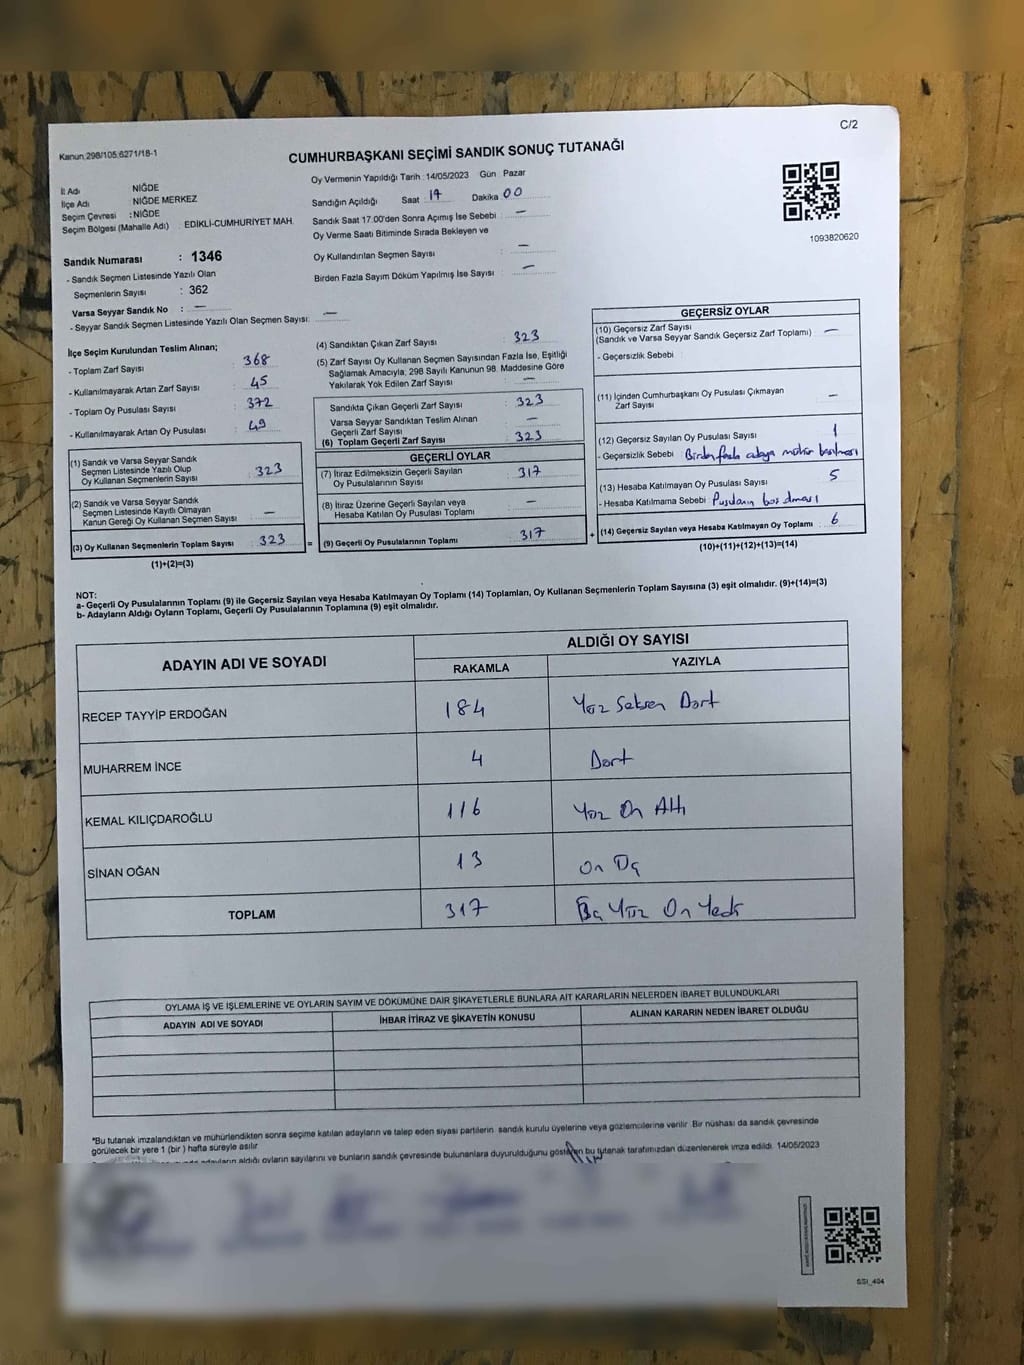 C/2
Kanun 298/105.6271/18-1
CUMHURBAŞKANI SEÇİMİ SANDIK SONUÇ TUTANAĞI
İl Adı NİĞDE
İlçe Adı NİĞDE MERKEZ
Seçim Çevresi : NİĞDE
Seçim Bölgesi (Mahalle Adı) : EDİKLİ-CUMHURİYET MAH.
Oy Vermenin Yapıldığı Tarih : 14/05/2023 Gün : Pazar
Sandığın Açıldığı Saat 17 Dakika 00
Sandık Saat 17.00'den Sonra Açımış İse Sebebi : —
Oy Verme Saati Bitiminde Sırada Bekleyen ve
Oy Kullandırılan Seçmen Sayısı : —
Birden Fazla Sayım Döküm Yapılmış İse Sayısı : —
1093820620
Sandık Numarası : 1346
- Sandık Seçmen Listesinde Yazılı Olan
Seçmenlerin Sayısı : 362
Varsa Seyyar Sandık No : —
- Seyyar Sandık Seçmen Listesinde Yazılı Olan Seçmen Sayısı: —
İlçe Seçim Kurulundan Teslim Alınan;
- Toplam Zarf Sayısı : 368
- Kullanılmayarak Artan Zarf Sayısı : 45
- Toplam Oy Pusulası Sayısı : 372
- Kullanılmayarak Artan Oy Pusulası : 49
(1) Sandık ve Varsa Seyyar Sandık
Seçmen Listesinde Yazılı Olup
Oy Kullanan Seçmenlerin Sayısı : 323
(2) Sandık ve Varsa Seyyar Sandık
Seçmen Listesinde Kayıtlı Olmayan
Kanun Gereği Oy Kullanan Seçmen Sayısı : —
(3) Oy Kullanan Seçmenlerin Toplam Sayısı : 323
(1)+(2)=(3)
(4) Sandıktan Çıkan Zarf Sayısı : 323
(5) Zarf Sayısı Oy Kullanan Seçmen Sayısından Fazla İse, Eşitliği
Sağlamak Amacıyla, 298 Sayılı Kanunun 98. Maddesine Göre
Yakılarak Yok Edilen Zarf Sayısı : —
Sandıkta Çıkan Geçerli Zarf Sayısı : 323
Varsa Seyyar Sandıktan Teslim Alınan
Geçerli Zarf Sayısı : —
(6) Toplam Geçerli Zarf Sayısı : 323
GEÇERLİ OYLAR
(7) İtiraz Edilmeksizin Geçerli Sayılan
Oy Pusulalarının Sayısı : 317
(8) İtiraz Üzerine Geçerli Sayılan veya
Hesaba Katılan Oy Pusulası Toplamı : —
= (9) Geçerli Oy Pusulalarının Toplamı : 317
GEÇERSİZ OYLAR
(10) Geçersiz Zarf Sayısı
(Sandık ve Varsa Seyyar Sandık Geçersiz Zarf Toplamı) : —
- Geçersizlik Sebebi :
(11) İçinden Cumhurbaşkanı Oy Pusulası Çıkmayan
Zarf Sayısı : —
(12) Geçersiz Sayılan Oy Pusulası Sayısı : 1
- Geçersizlik Sebebi : Birden fazla adaya mühür basılması
(13) Hesaba Katılmayan Oy Pusulası Sayısı : 5
- Hesaba Katılmama Sebebi : Pusulanın boş olması
+ (14) Geçersiz Sayılan veya Hesaba Katılmayan Oy Toplamı : 6
(10)+(11)+(12)+(13)=(14)
NOT:
a- Geçerli Oy Pusulalarının Toplamı (9) ile Geçersiz Sayılan veya Hesaba Katılmayan Oy Toplamı (14) Toplamları, Oy Kullanan Seçmenlerin Toplam Sayısına (3) eşit olmalıdır. (9)+(14)=(3)
b- Adayların Aldığı Oyların Toplamı, Geçerli Oy Pusulalarının Toplamına (9) eşit olmalıdır.
ADAYIN ADI VE SOYADI ALDIĞI OY SAYISI
RAKAMLA YAZIYLA
RECEP TAYYİP ERDOĞAN 184 Yüz Seksen Dört
MUHARREM İNCE 4 Dört
KEMAL KILIÇDAROĞLU 116 Yüz On Altı
SİNAN OĞAN 13 On Üç
TOPLAM 317 Üç Yüz On Yedi
OYLAMA İŞ VE İŞLEMLERİNE VE OYLARIN SAYIM VE DÖKÜMÜNE DAİR ŞİKAYETLERLE BUNLARA AİT KARARLARIN NELERDEN İBARET BULUNDUKLARI
ADAYIN ADI VE SOYADI İHBAR İTİRAZ VE ŞİKAYETİN KONUSU ALINAN KARARIN NEDEN İBARET OLDUĞU
*Bu tutanak imzalandıktan ve mühürlendikten sonra seçime katılan adayların ve talep eden siyasi partilerin sandık kurulu üyelerine veya gözlemcilerine verilir. Bir nüshası da sandık çevresinde
görülecek bir yere 1 (bir) hafta süreyle asılır
adayların aldığı oyların sayılarını ve bunların sandık çevresinde bulunanlara duyurulduğunu gösteren bu tutanak tarafımızdan düzenlenerek imza edildi. 14/05/2023
SSI_404